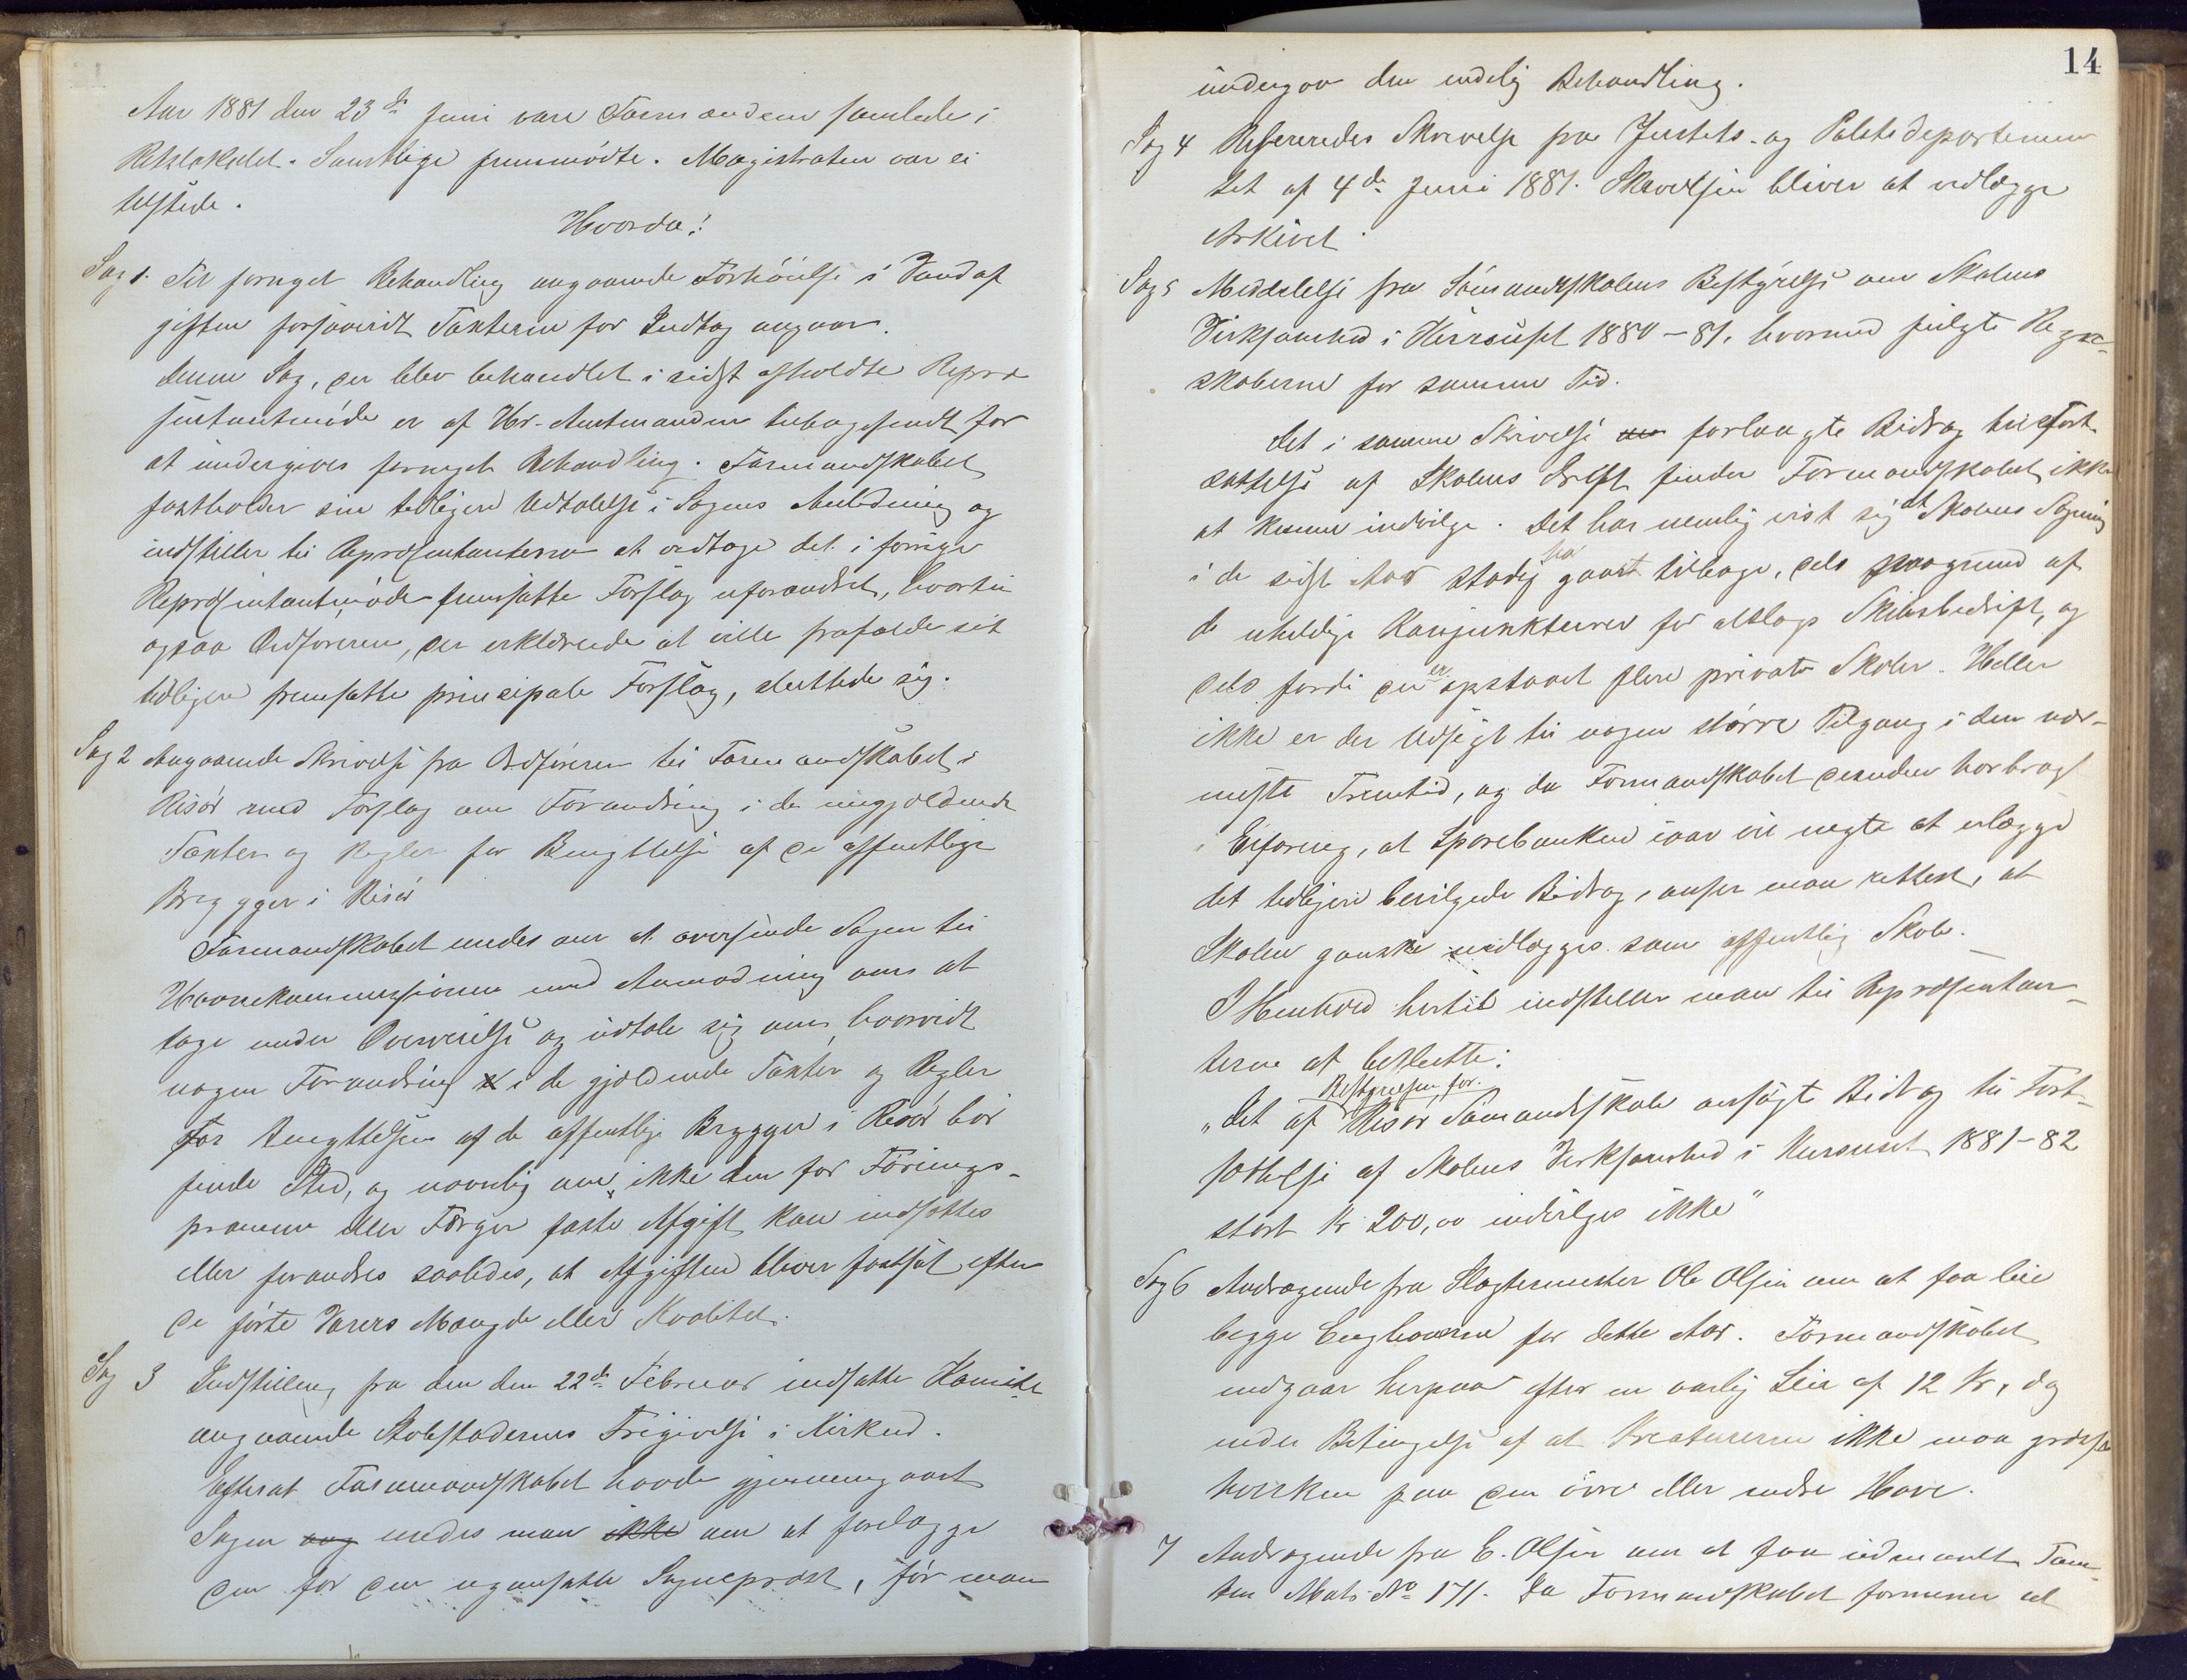 Aar 1881 den 23de Juni vare Formændene samlede i
Retslokalet. Samtlige fremmødte. Magistraten var ei
tilstede.
Hvorda!
Sag 1. Til fornyet Behandling angaaende Forhöielse i Vandaf
giften forsaavidt Taxterne for Indtag angaar.
Denne Sag, der blev behandlet i sidst afholdte Repræ
sentantmöde er af Hr. Amtmanden tilbagesendt for
at undergives fornyet Behandling. Formandskabet
fastholder sin tidligere Udtalelse i Sagens Anledning og
indstiller til Repræsentanterne at vedtage det i forrige
Repræsentantmöde fremsatte Forslag uforandret, hvortil
ogsaa Ordföreren, der erklærede at ville frafalde sit
tidligere fremsatte principale Forslag, sluttede sig.
Sag 2 Angaaende Skrivelse fra Ordföreren til Formandskabet i
Risör med Forslag om Forandring i de nugjældende
Taxter og Regler for Benyttelse af de offentlige
Brygger i Risör
Formandskabet enedes om at oversende Sagen til
Havnekommissionen med Anmodning om at
tage under Overveielse og udtale sig om, hvorvidt
nogen Forandring i de gjældende Taxter og Regler
for Benyttelsen af de offentlige Brygger i Risör bör
finde Sted, og navnlig om ikke den for Förings-
pramme eller Færger faste Afgift kan nedsættes
eller forandres saaledes, at Afgiften bliver fastsat efter
de förte Varers Mængde eller Kvalitet.
Sag 3 Indstilling fra den den 22de Februar nedsatte Komite
angaaende Stolestadernes Frigivelse i Kirken.
Efterat Formandskabet havde gjennemgaaet
Sagen enedes man ikke om at forelægge
den for den nyansatte Sogneprest, för man
14
undergav den endelig Behandling.
Sag 4 Refereredes Skrivelse fra Justits- og Politidepartemen
tet af 4de Juni 1881. Skrivelsen bliver at vedlægge
Arkivet.
Sag 5 Meddelelse fra Sömandsskolens Bestyrelse om Skolens
Virksomhed i Kursuset 1880-81, hvormed fulgte Regn-
skaberne for samme Tid.
Det i samme Skrivelse forlangte Bidrag til Fort-
sættelse af Skolens Drift finder Formandskabet ikke
at kunne indvilge. Det har nemlig vist sig at Skolens Sögning
i de sidste Aar stadig har gaaet tilbage, dels paagrund af
de uheldige Konjunkturer for altslags Skibsbedrift, og
dels fordi der er opstaaet flere private Skoler. Heller
ikke er der Udsigt til nogen större Tilgang i den nær-
meste Fremtid, og da Formandskabet desuden har bragt
i Erfaring, at Sparebanken iaar vil negte at erlægge
det tidligere bevilgede Bidrag, anser man rettest, at
Skolen ganske nedlægges som offentlig Skole.
I Henhold hertil indstiller man til Repræsentan-
terne at beslutte:
"Det af Bestyrelsen for Risör Sömandsskole ansögte Bidrag til Fort-
sættelse af Skolens Virksomhed i Kursuset 1881-82
stort Kr 200,00 indvilges ikke"
Sag 6 Andragende fra Slagtermester Ole Olsen om at faa leie
begge Enghaverne for dette Aar. Formandskabet
indgaar herpaa efter en aarlig Leie af 12 Kr, dog
under Betingelse af at Kreaturerne ikke maa græsse
hverken paa den övre eller nedre Have.
7 Andragende fra E. Olsen om at faa udmaalt Tom-
ten Mats No 171. Da Formandskabet formener at